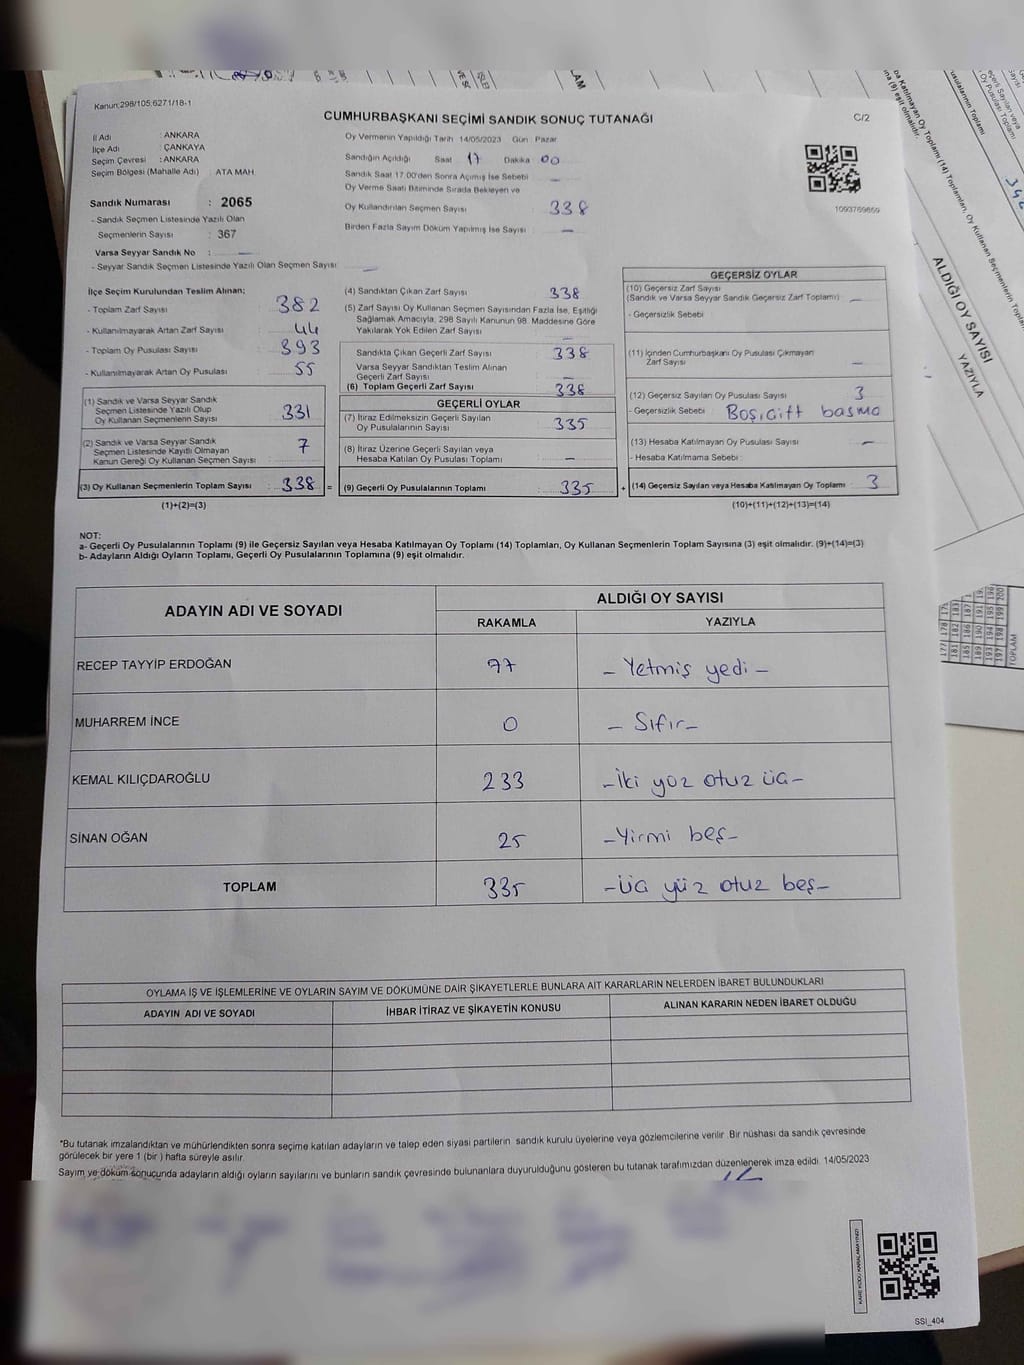 Kanun:298/105;6271/18-1
CUMHURBAŞKANI SEÇİMİ SANDIK SONUÇ TUTANAĞI
C/2
İl Adı : ANKARA
İlçe Adı : ÇANKAYA
Seçim Çevresi : ANKARA
Seçim Bölgesi (Mahalle Adı) : ATA MAH.
Sandık Numarası : 2065
- Sandık Seçmen Listesinde Yazılı Olan
Seçmenlerin Sayısı : 367
Varsa Seyyar Sandık No : —
- Seyyar Sandık Seçmen Listesinde Yazılı Olan Seçmen Sayısı : —
Oy Vermenin Yapıldığı Tarih 14/05/2023 Gün : Pazar
Sandığın Açıldığı Saat 17 Dakika 00
Sandık Saat 17.00'den Sonra Açılmış İse Sebebi —
Oy Verme Saati Bitiminde Sırada Bekleyen ve
Oy Kullandırılan Seçmen Sayısı 338
Birden Fazla Sayım Döküm Yapılmış İse Sayısı : —
1093769859
İlçe Seçim Kurulundan Teslim Alınan;
- Toplam Zarf Sayısı : 382
- Kullanılmayarak Artan Zarf Sayısı : 44
- Toplam Oy Pusulası Sayısı : 393
- Kullanılmayarak Artan Oy Pusulası : 55
(1) Sandık ve Varsa Seyyar Sandık
Seçmen Listesinde Yazılı Olup
Oy Kullanan Seçmenlerin Sayısı : 331
(2) Sandık ve Varsa Seyyar Sandık
Seçmen Listesinde Kayıtlı Olmayan
Kanun Gereği Oy Kullanan Seçmen Sayısı : 7
(3) Oy Kullanan Seçmenlerin Toplam Sayısı : 338 =
(1)+(2)=(3)
(4) Sandıktan Çıkan Zarf Sayısı : 338
(5) Zarf Sayısı Oy Kullanan Seçmen Sayısından Fazla İse, Eşitliği
Sağlamak Amacıyla, 298 Sayılı Kanunun 98. Maddesine Göre
Yakılarak Yok Edilen Zarf Sayısı : —
Sandıkta Çıkan Geçerli Zarf Sayısı : 338
Varsa Seyyar Sandıktan Teslim Alınan
Geçerli Zarf Sayısı : —
(6) Toplam Geçerli Zarf Sayısı : 338
GEÇERLİ OYLAR
(7) İtiraz Edilmeksizin Geçerli Sayılan
Oy Pusulalarının Sayısı : 335
(8) İtiraz Üzerine Geçerli Sayılan veya
Hesaba Katılan Oy Pusulası Toplamı : —
(9) Geçerli Oy Pusulalarının Toplamı : 335 +
GEÇERSİZ OYLAR
(10) Geçersiz Zarf Sayısı
(Sandık ve Varsa Seyyar Sandık Geçersiz Zarf Toplamı) : —
- Geçersizlik Sebebi :
(11) İçinden Cumhurbaşkanı Oy Pusulası Çıkmayan
Zarf Sayısı : —
(12) Geçersiz Sayılan Oy Pusulası Sayısı : 3
- Geçersizlik Sebebi : Boş,çift basma
(13) Hesaba Katılmayan Oy Pusulası Sayısı : —
- Hesaba Katılmama Sebebi :
(14) Geçersiz Sayılan veya Hesaba Katılmayan Oy Toplamı : 3
(10)+(11)+(12)+(13)=(14)
NOT:
a- Geçerli Oy Pusulalarının Toplamı (9) ile Geçersiz Sayılan veya Hesaba Katılmayan Oy Toplamı (14) Toplamları, Oy Kullanan Seçmenlerin Toplam Sayısına (3) eşit olmalıdır. (9)+(14)=(3)
b- Adayların Aldığı Oyların Toplamı, Geçerli Oy Pusulalarının Toplamına (9) eşit olmalıdır.
ADAYIN ADI VE SOYADI
ALDIĞI OY SAYISI
RAKAMLA YAZIYLA
RECEP TAYYİP ERDOĞAN 77 - Yetmiş yedi -
MUHARREM İNCE 0 - Sıfır -
KEMAL KILIÇDAROĞLU 233 - İki yüz otuz üç -
SİNAN OĞAN 25 - Yirmi beş -
TOPLAM 335 - Üç yüz otuz beş -
OYLAMA İŞ VE İŞLEMLERİNE VE OYLARIN SAYIM VE DÖKÜMÜNE DAİR ŞİKAYETLERLE BUNLARA AİT KARARLARIN NELERDEN İBARET BULUNDUKLARI
ADAYIN ADI VE SOYADI İHBAR İTİRAZ VE ŞİKAYETİN KONUSU ALINAN KARARIN NEDEN İBARET OLDUĞU
*Bu tutanak imzalandıktan ve mühürlendikten sonra seçime katılan adayların ve talep eden siyasi partilerin sandık kurulu üyelerine veya gözlemcilerine verilir. Bir nüshası da sandık çevresinde
görülecek bir yere 1 (bir) hafta süreyle asılır.
Sayım ve döküm sonucunda adayların aldığı oyların sayılarını ve bunların sandık çevresinde bulunanlara duyurulduğunu gösteren bu tutanak tarafımızdan düzenlenerek imza edildi. 14/05/2023
KARE KODU KARALAMAYINIZ!
SSI_404
ALDIĞI OY SAYISI
YAZIYLA
TOPLAM